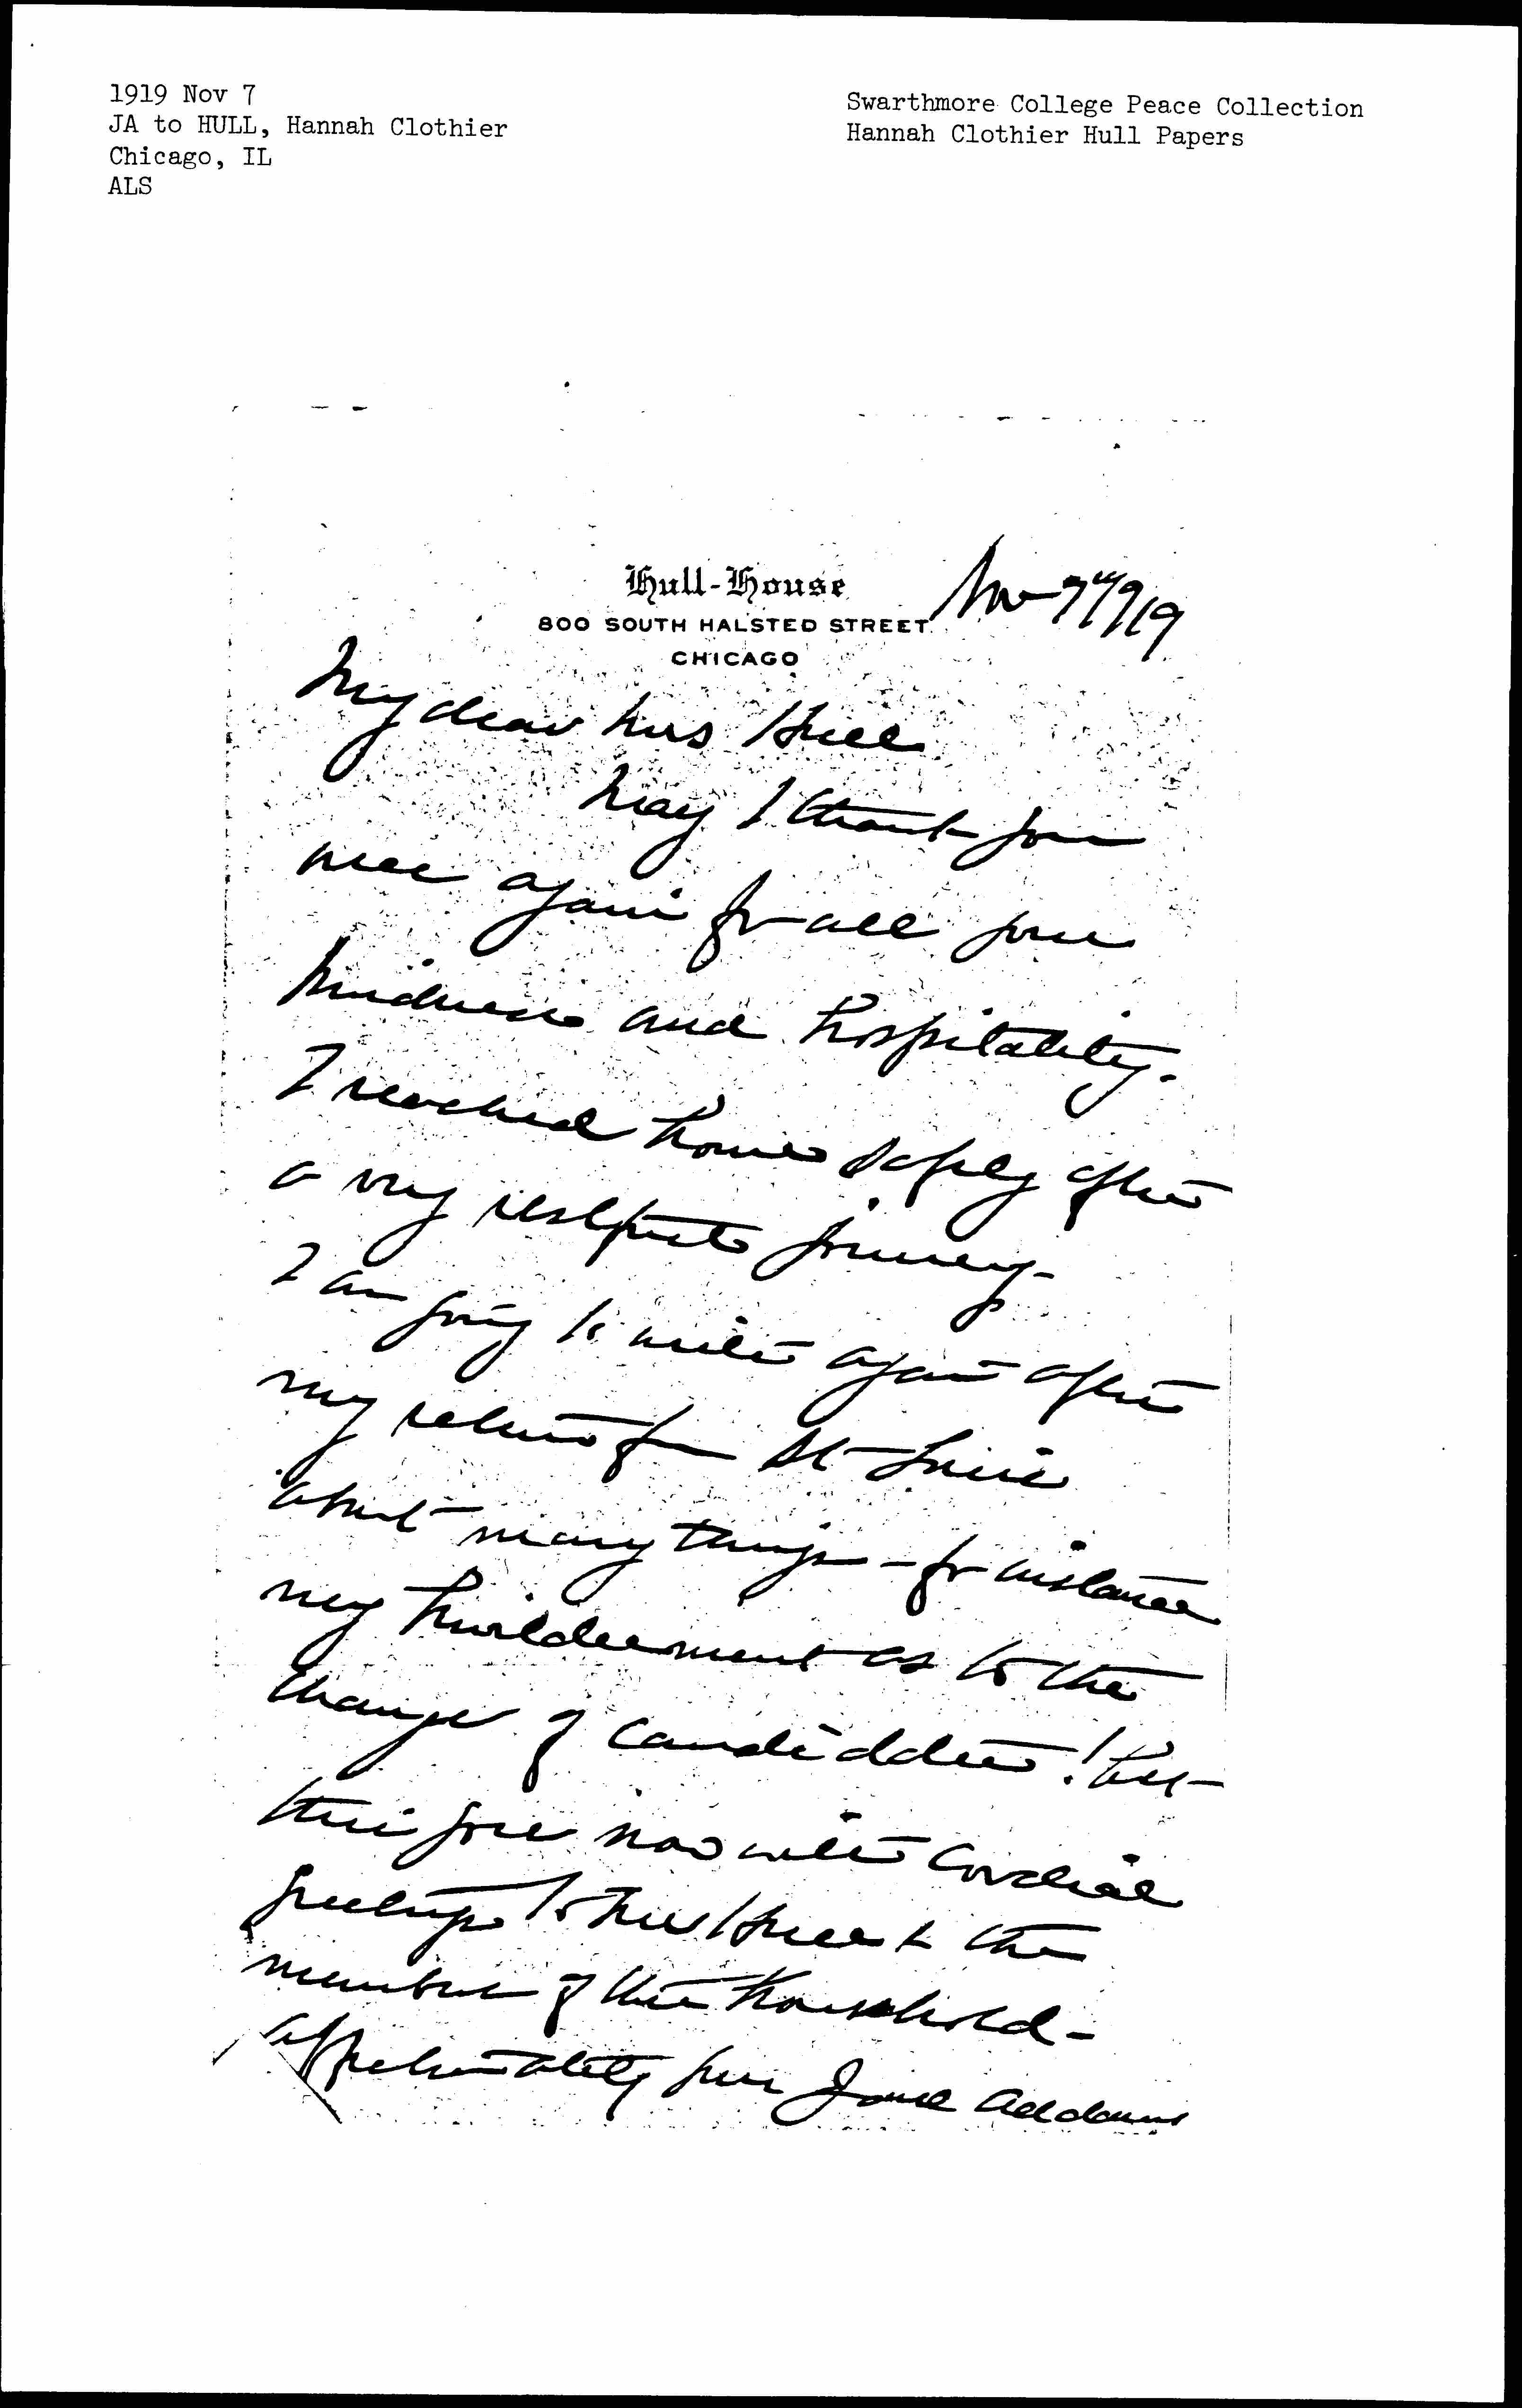 1919 Nov 7
JA to HULL, Hannah Clothier
Chicago, IL
ALS
Swarthmore College Peace Collection
Hannah Clothier Hull Papers
Hull-House
800 SOUTH HALSTED STREET
CHICAGO
Nov 7" 1919
My dear Mrs Hull
May I thank you
once again for all your
kindness and hospitality.
I reached home safely after
a very restful journey.
I am going to write again after
my return from St Louis
about many things - for instance
my bewilderment as to the
change of candidates! But
this goes now with cordial
greetings to Mr Hull & the
members of the household -
affectionately yours Jane Addams